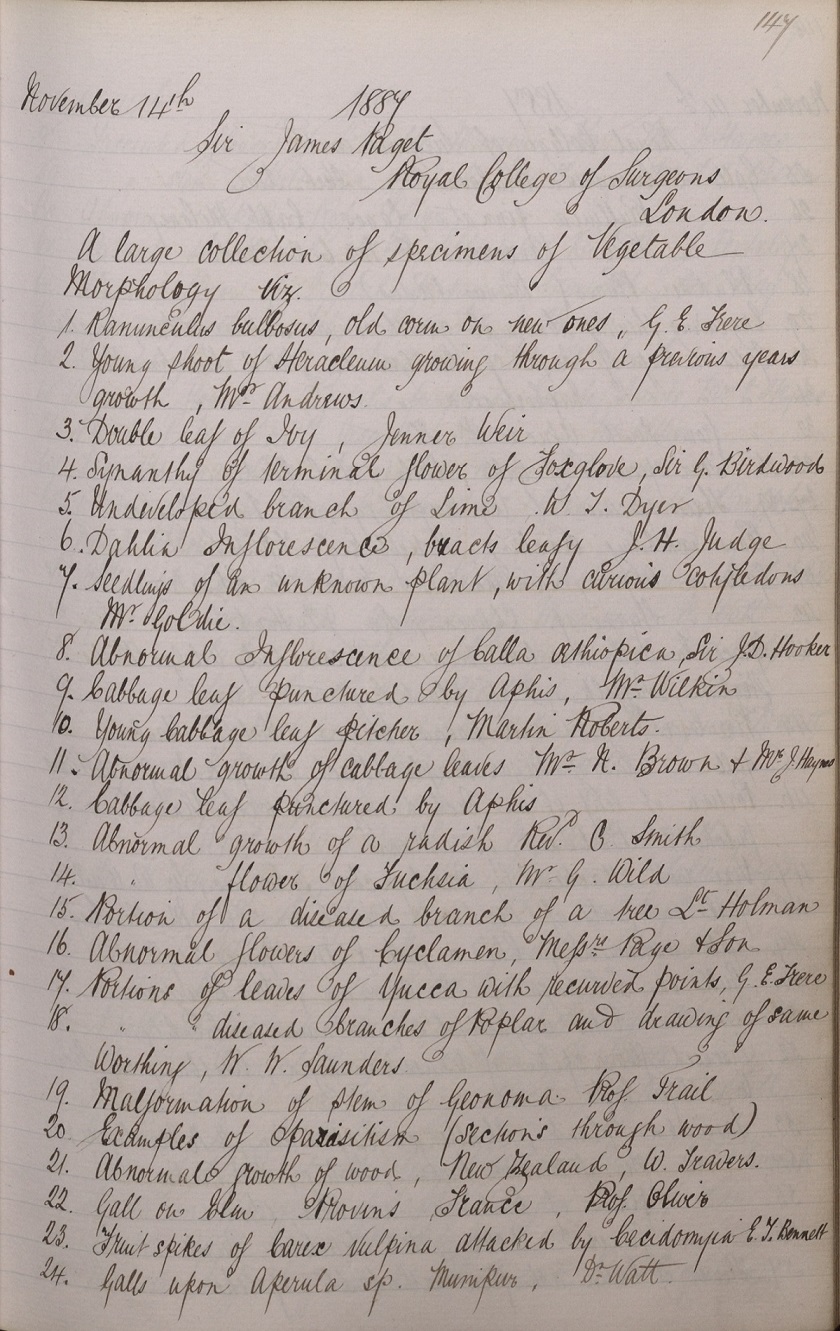 147
November 14th 1887
Sir James Paget
Royal College of Surgeons
London.
A large collection of specimens of Vegetable
Morphology viz.
1. Ranunculus bulbosus, old corm on new ones, G. E. Frere
2. Young shoot of Heracleum growing through a previous years
growth, Mrs Andrews.
3. Double leaf of Ivy, Jenner Weir
4. Synanthy of terminal flower of Foxglove, Sir G. Birdwood
5. Undeveloped branch of Lime W. T. Dyer
6. Dahlia Inflorescence, bracts leafy J. H. Judge
7. Seedlings of an unknown plant, with curious cotyledons
Mr Goldie.
8. Abnormal Inflorescence of Calla æthiopica, Sir J. D. Hooker
9. Cabbage leaf punctured by Aphis, Mr Wilkin
10. Young Cabbage leaf pitcher, Martin Roberts.
11. Abnormal growth of cabbage leaves Mr N. Brown & Mr J. Haynes
12. Cabbage leaf punctured by Aphis
13. Abnormal growth of a radish Revd. C. Smith
14. " flower of Fuchsia, Mr G. Wild
15. Portion of a diseased branch of a tree Lt Holman
16. Abnormal flowers of Cyclamen, Messrs Page & Son
17. Portions of leaves of Yucca with recurved points, G. E. Frere
18. " " diseased branches of Poplar and drawing of same
Worthing, W. W. Saunders.
19. Malformation of stem of Geonoma. Prof Trail
20. Examples of parasitism (sections through wood)
21. Abnormal growth of wood, New Zealand, W. Travers.
22. Gall on Elm Provins France, Prof. Oliver
23. Fruit spikes of Carex vulpina attacked by Cecidomyia E. T. Bennett
24. Galls upon Asperula sp. Munipur, Dr Watt.